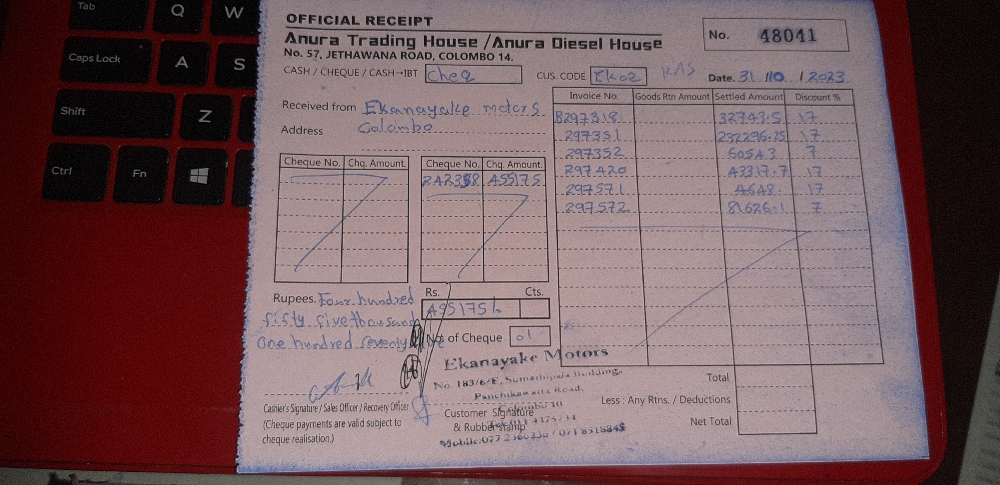 Tab
Q
W
Caps Lock
A
S
Shift
Z
Ctrl
Fn
OFFICIAL RECEIPT
Anura Trading House /Anura Diesel House
No. 57, JETHAWANA ROAD, COLOMBO 14.
No. 48041
CASH / CHEQUE / CASH→IBT Cheq
CUS. CODE EK02 RAS
Date. 31 /10 /2023
Received from Ekanayake motors
Address Colombo
Invoice No. Goods Rtn Amount Settled Amount Discount %
B297318 32743.5 17
297351 232296.75 17
297352 60543 7
297420 43317.7 17
297571 4648 17
297572 81626.1 7
Cheque No. Chq. Amount. Cheque No. Chq. Amount.
242358 455175
Rupees. Four hundred
fifty five thousand
One hundred seventy five
Rs. Cts.
455175/-
No. of Cheque 01
Ekanayake Motors
No. 183/6/E, Sumathipala Building,
Panchikawatta Road,
Colombo 10
Cashier's Signature / Sales Officer / Recovery Officer
(Cheque payments are valid subject to
cheque realisation.)
Customer Signature
& Rubber stamp
Total
Less : Any Rtns. / Deductions
Net Total